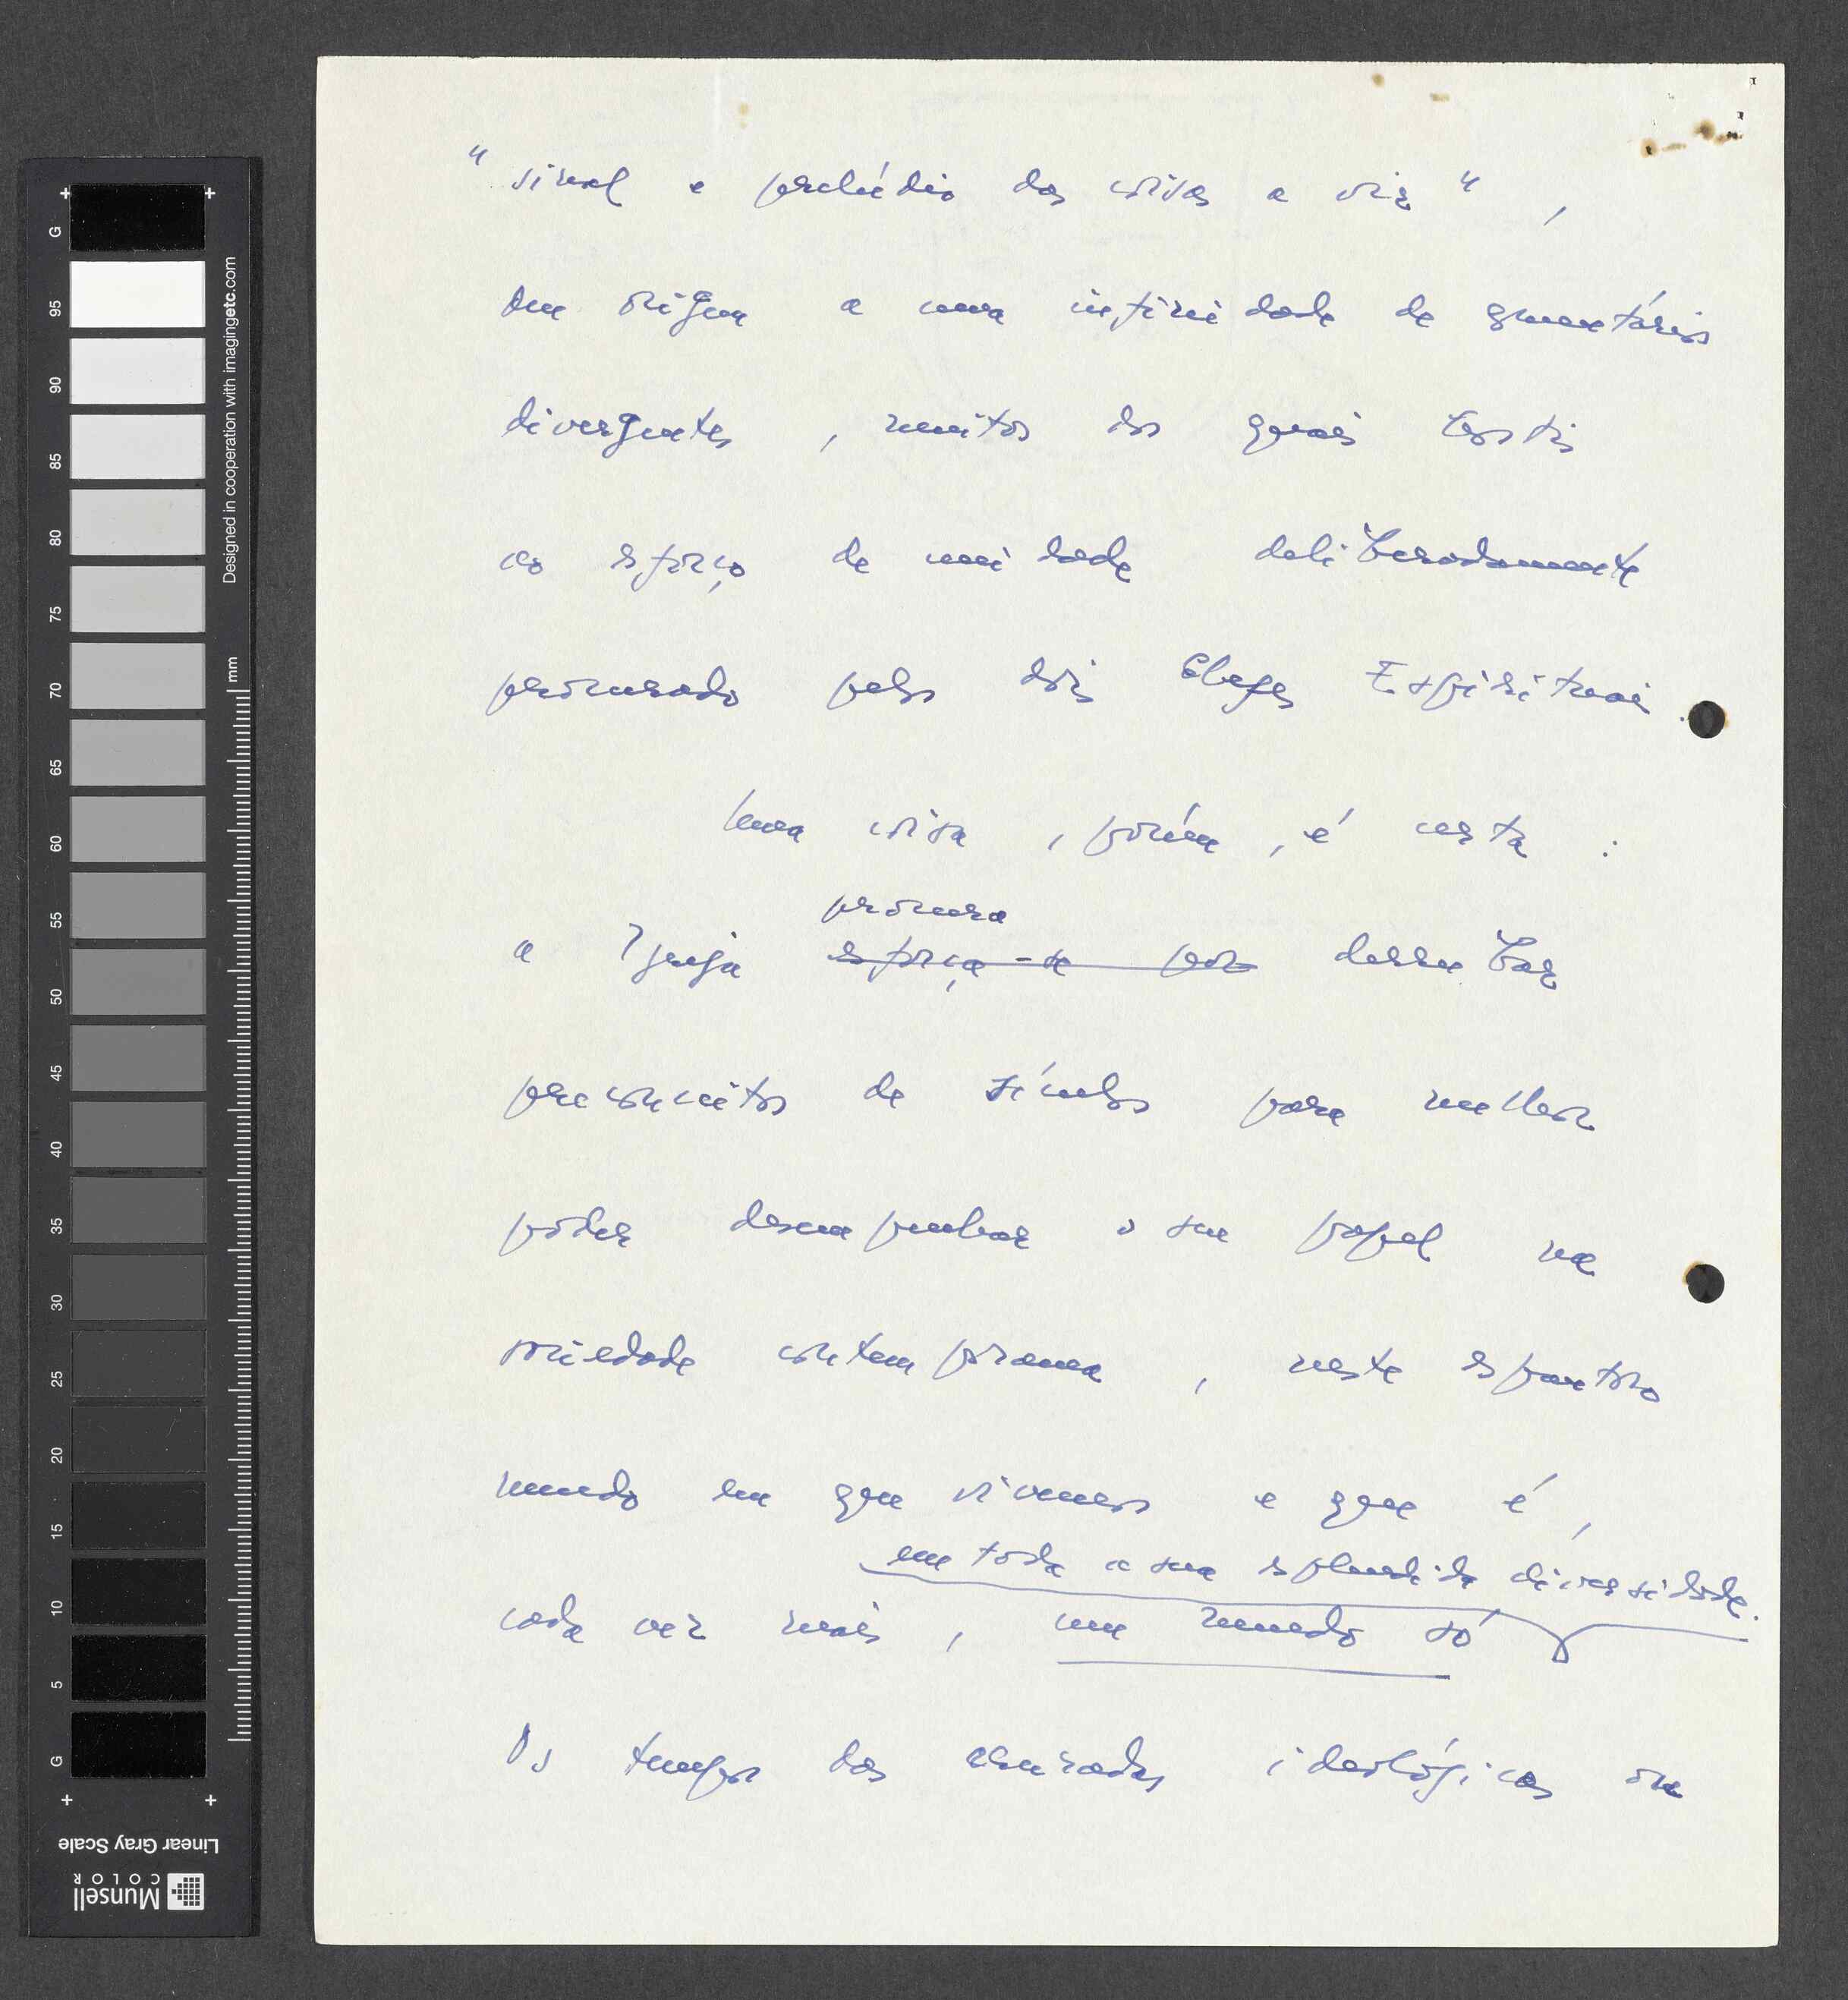 " sinal e prelúdio das coisas a vir " ,
deu origem a uma infinidade de comentários
divergentes , muitos dos quais hostis
ao esforço de unidade deliberadamente
procurado pelos dois Chefes Espirituais .
Uma coisa , porém , é certa :
procura
a Igreja esforça-se por derrubar
preconceitos de séculos para melhor
poder desempenhar o seu papel na
sociedade contemporanea , neste espantoso
mundo em que vivemos e que é ,
em toda a sua esplendida diversidade.
cada vez mais , um mundo só
Os tempos das cruzadas ideológicas ou
G
95
90
85
80
75
70
65
60
55
50
45
40
35
30
25
20
15
10
5
G
Designed in cooperation with imagingetc.com
mm
Linear Gray Scale
Munsell
COLOR